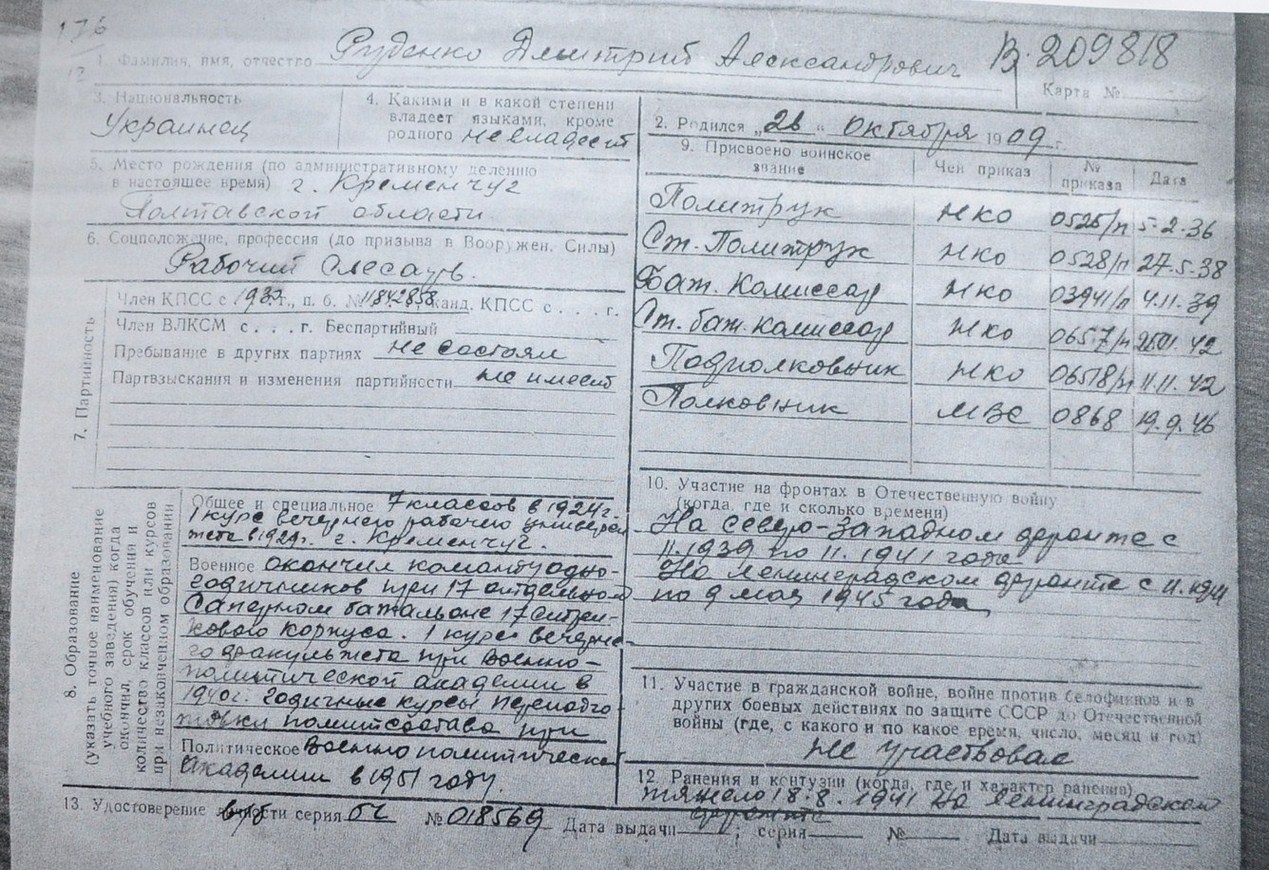 176
1. Фамилия, имя, отчество Руденко Дмитрий Александрович В-209818
Карта №
3. Национальность
Украинец
4. Какими и в какой степени
владеет языками, кроме
родного не владеет
2. Родился „26“ Октября 1909 г.
5. Место рождения (по административному делению
в настоящее время) г. Кременчуг
Полтавской области
6. Соцположение, профессия (до призыва в Вооружен. Силы)
Рабочий Слесарь.
7. Партийность
Член КПСС с 1932 г., п. б. № 11842858, канд. КПСС с . . . г.
Член ВЛКСМ с. . . г. Беспартийный
Пребывание в других партиях не состоял
Партвзыскания и изменения партийности не имеет
9. Присвоено воинское звание | Чей приказ | № приказа | Дата
Политрук НКО 0526/п 5-2-36
Ст. Политрук НКО 0528/п 27.5.38
Бат. Комиссар НКО 03941/п 4.11.39
Ст. бат. комиссар НКО 0657/п 42
Подполковник НКО 06518/п 11.11.42
Полковник МВС 0868 19.9.46
8. Образование
(указать точное наименование
учебного заведения) когда
окончил, срок обучения и
количество классов или курсов
при незаконченном образовании
Общее и специальное 7 классов в 1924г.
1 курс вечернего рабочего универси
тета в 1929г. г. Кременчуг.
Военное окончил команду одно-
годичников при 17 отдельном
Саперном батальоне 17 стрел-
кового корпуса. 1 курс вечерне-
го факультета при Военно-
политической академии в
1940г. годичные курсы переподго-
товки политсостава при
Политическое Военно политической
Академии в 1951 году.
10. Участие на фронтах в Отечественную войну
(когда, где и сколько времени)
На северо-западном фронте с
11.1939 по 11.1941 года
На Ленинградском фронте с 11.1941
по 9 мая 1945 года
11. Участие в гражданской войне, войне против белофиннов и в
других боевых действиях по защите СССР до Отечественной
войны (где, с какого и по какое время, число, месяц и год)
Не участвовал
12. Ранения и контузии (когда, где и характер ранения)
тяжело 18.8.1941 на Ленинградском
фронте
13. Удостоверение личности серия № 018569 Дата выдачи ; серия № Дата выдачи